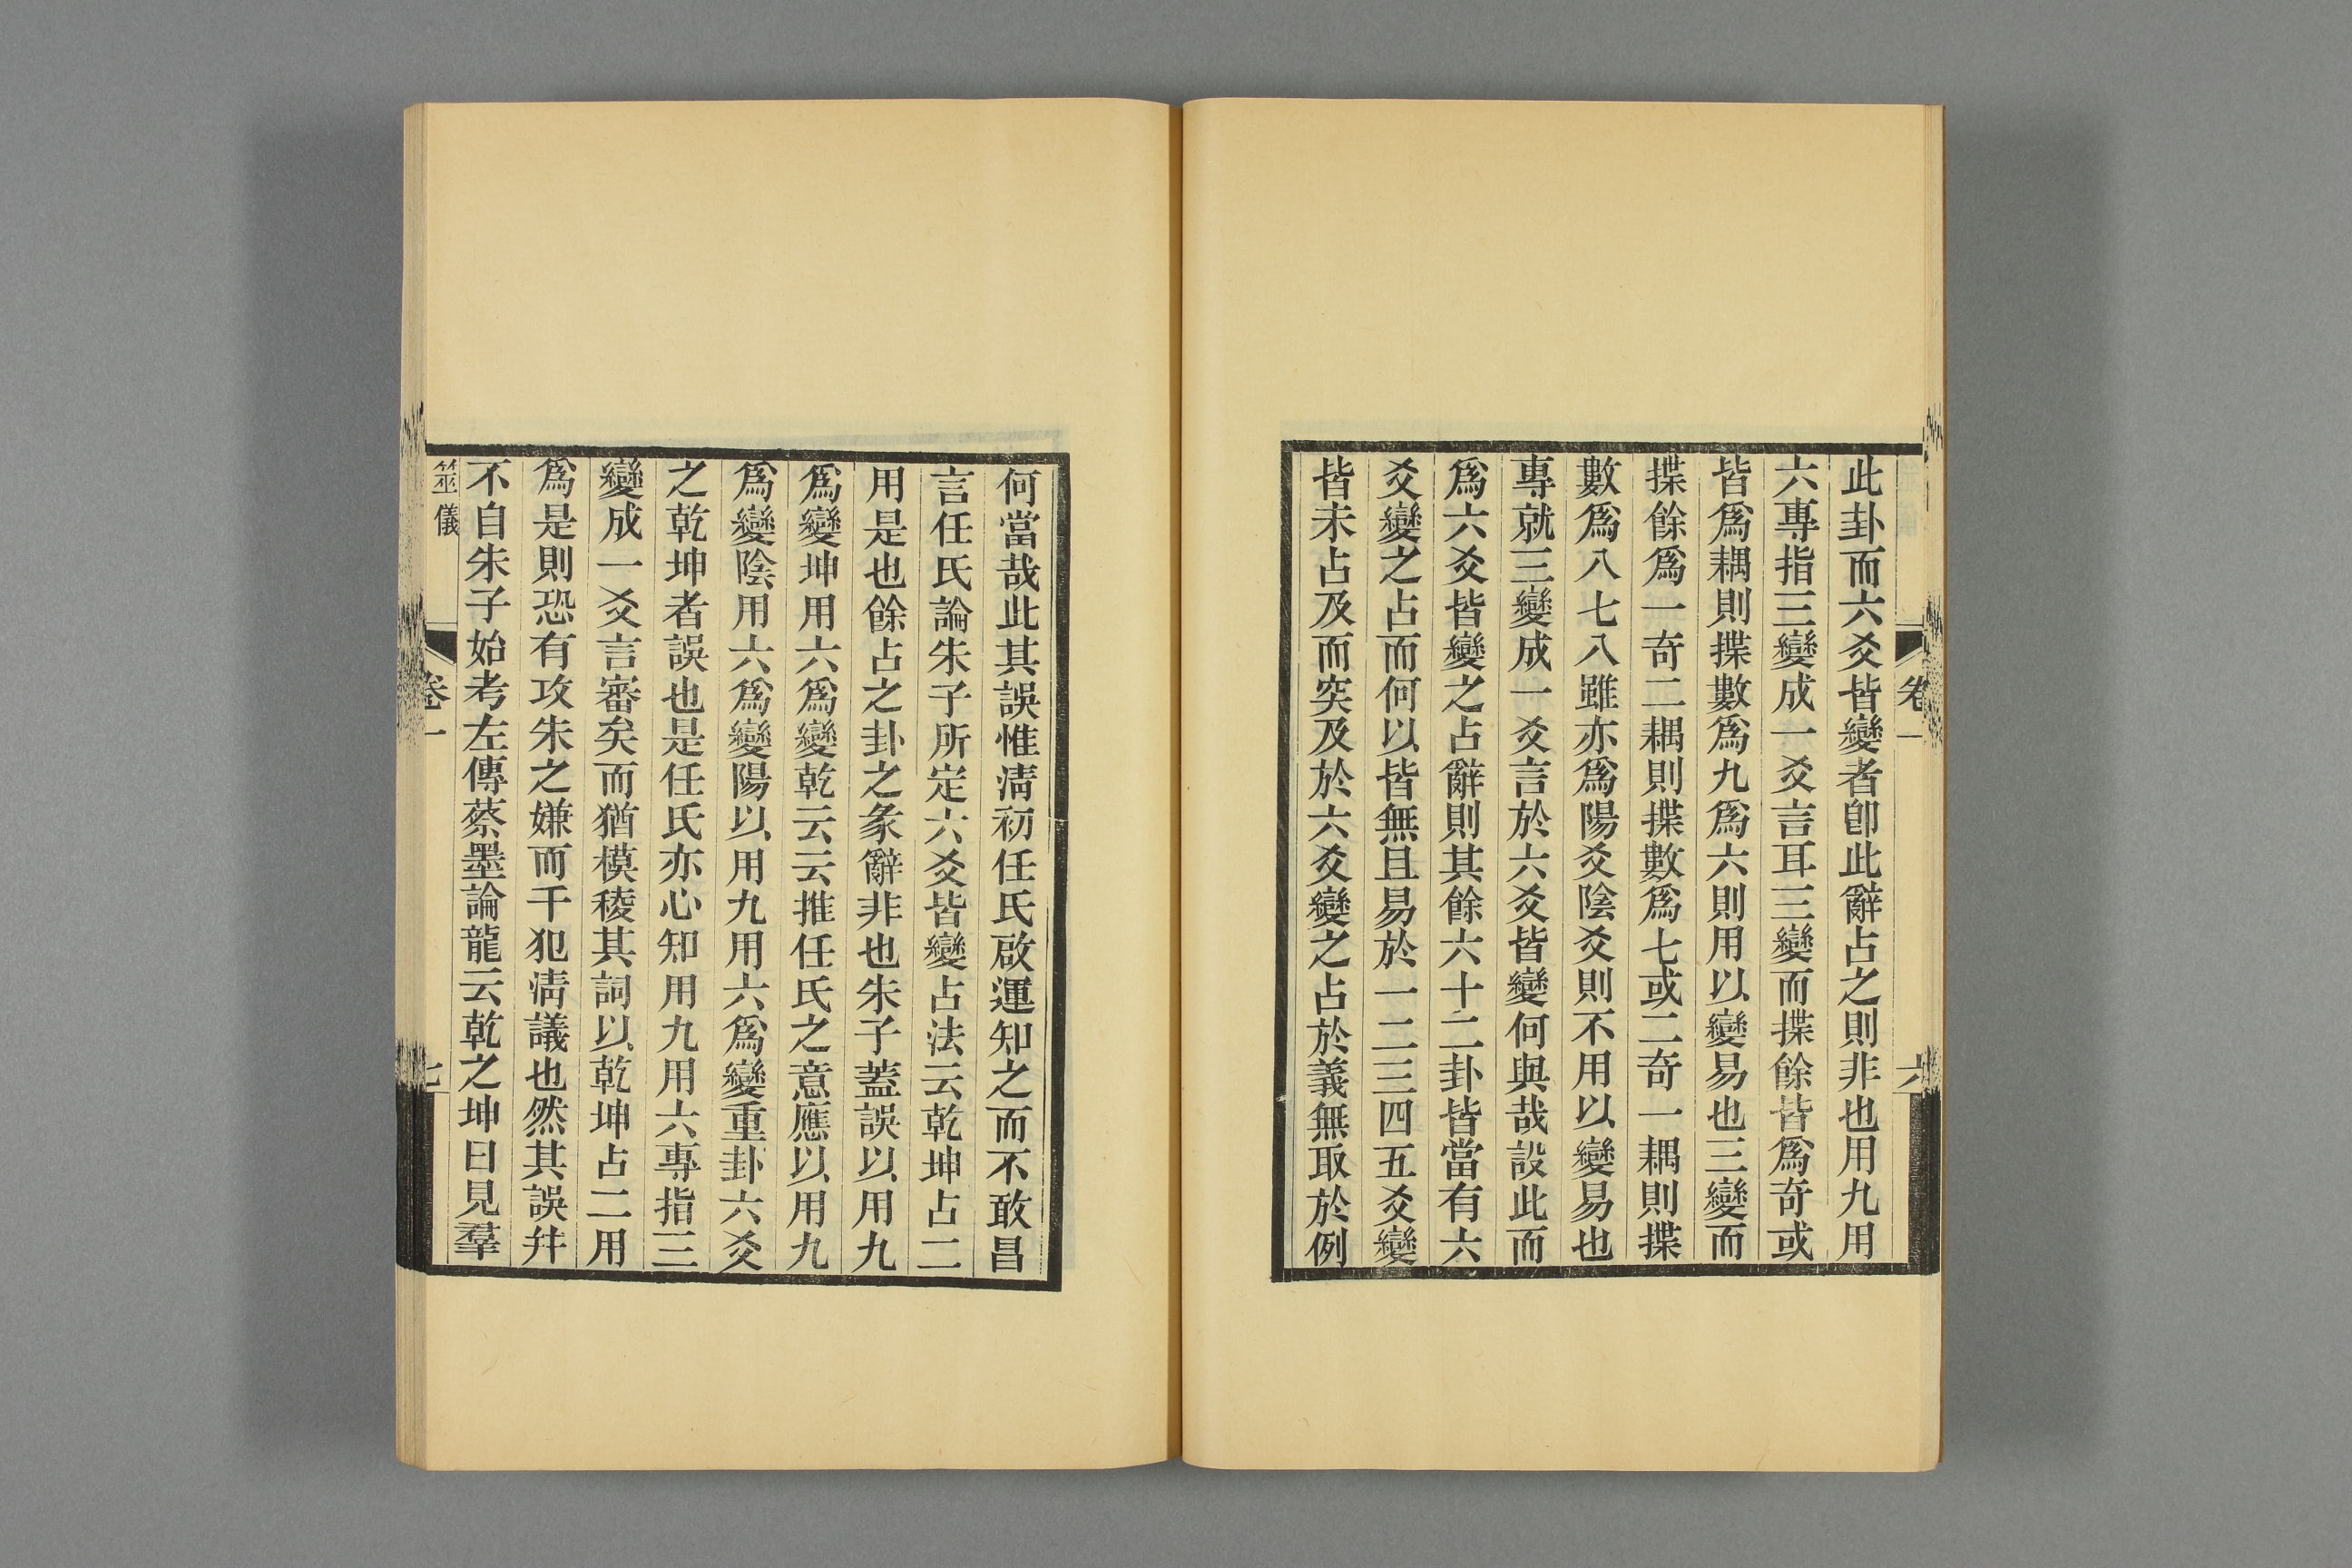 卷一
六
此卦而六爻皆變者卽此辭占之則非也用九用
六專指三變成一爻言耳三變而揲餘皆爲奇或
皆爲耦則揲數爲九爲六則用以變易也三變而
揲餘爲一奇二耦則揲數爲七或二奇一耦則揲
數爲八七八雖亦爲陽爻陰爻則不用以變易也
專就三變成一爻言於六爻皆變何與哉設此而
爲六爻皆變之占辭則其餘六十二卦皆當有六
爻變之占而何以皆無且易於一二三四五爻變
皆未占及而突及於六爻變之占於義無取於例
何當哉此其誤惟淸初任氏啟運知之而不敢昌
言任氏論朱子所定六爻皆變占法云乾坤占二
用是也餘占之卦之彖辭非也朱子蓋誤以用九
爲變坤用六爲變乾云云推任氏之意應以用九
爲變陰用六爲變陽以用九用六爲變重卦六爻
之乾坤者誤也是任氏亦心知用九用六專指三
變成一爻言審矣而猶模稜其詞以乾坤占二用
爲是則恐有攻朱之嫌而干犯淸議也然其誤幷
不自朱子始考左傳蔡墨論龍云乾之坤曰見羣
筮儀
卷一
七